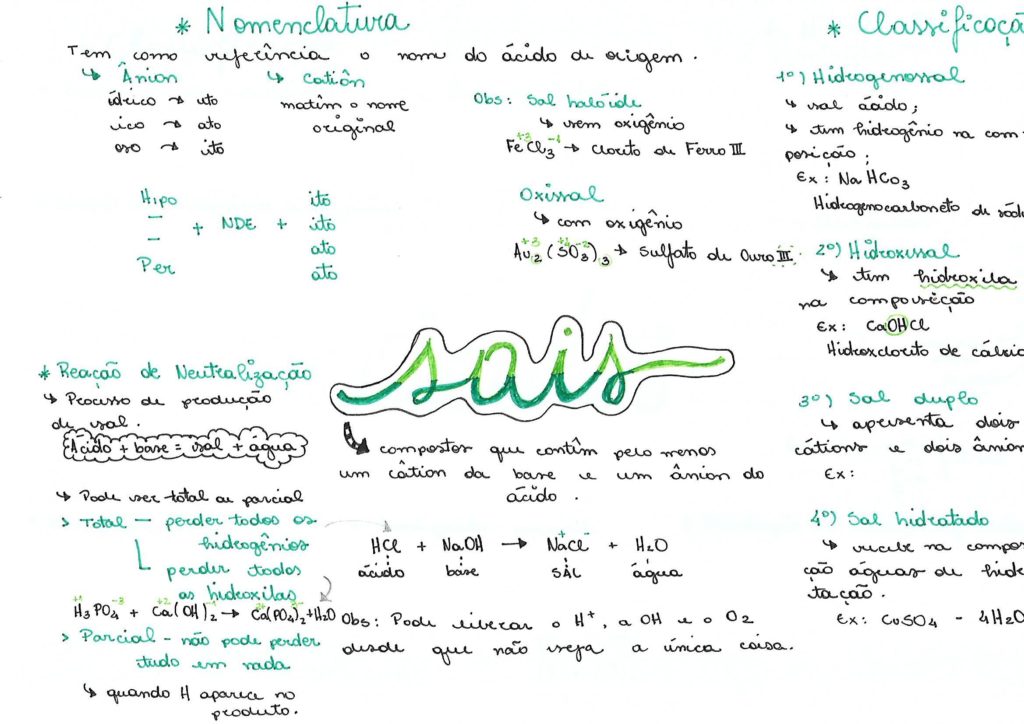 * Nomenclatura
Tem como referência o nome do ácido de origem.
↳ Ânion
ídrico → eto
ico → ato
oso → ito
↳ Cátion
matêm o nome
original
Hipo
—
—
Per
+ NDE +
ito
ito
ato
ato
Obs: Sal halóide
↳ sem oxigênio
+3 -1
FeCl3 → Cloreto de Ferro III
Oxissal
↳ com oxigênio
+3 +4 -2
Au2(SO3)3 → Sulfato de Ouro III
* Classificaçã
1º) Hidrogenossal
↳ sal ácido;
↳ tem hidrogênio na com-
posição;
Ex: NaHCO3
Hidrogenocarboneto de sód
2º) Hidroxissal
↳ tem hidroxila
na composição
Ex: CaOHCl
Hidroxcloreto de cálcio
3º) Sal duplo
↳ apresenta dois
cátions e dois ânion
Ex:
4º) Sal hidratado
↳ recebe na compos
ção águas de hidr
tação.
Ex: CuSO4 - 4H2O
sais
↳ compostos que contêm pelo menos
um cátion da base e um ânion do
ácido.
+ -
HCl + NaOH → NaCl + H2O
ácido base SAL água
Obs: Pode liberar o H+, a OH e o O2
desde que não seja a única coisa.
* Reação de Neutralização
↳ Processo de produção
de sal.
Ácido + base = sal + água
↳ Pode ser total ou parcial
> Total — perder todos os
hidrogênios
perder todas
as hidroxilas
+1 -3 +2
H3PO4 + Ca(OH)2 → Ca(PO4)2 + H2O
> Parcial - não pode perder
tudo em nada
↳ quando H aparece no
produto.